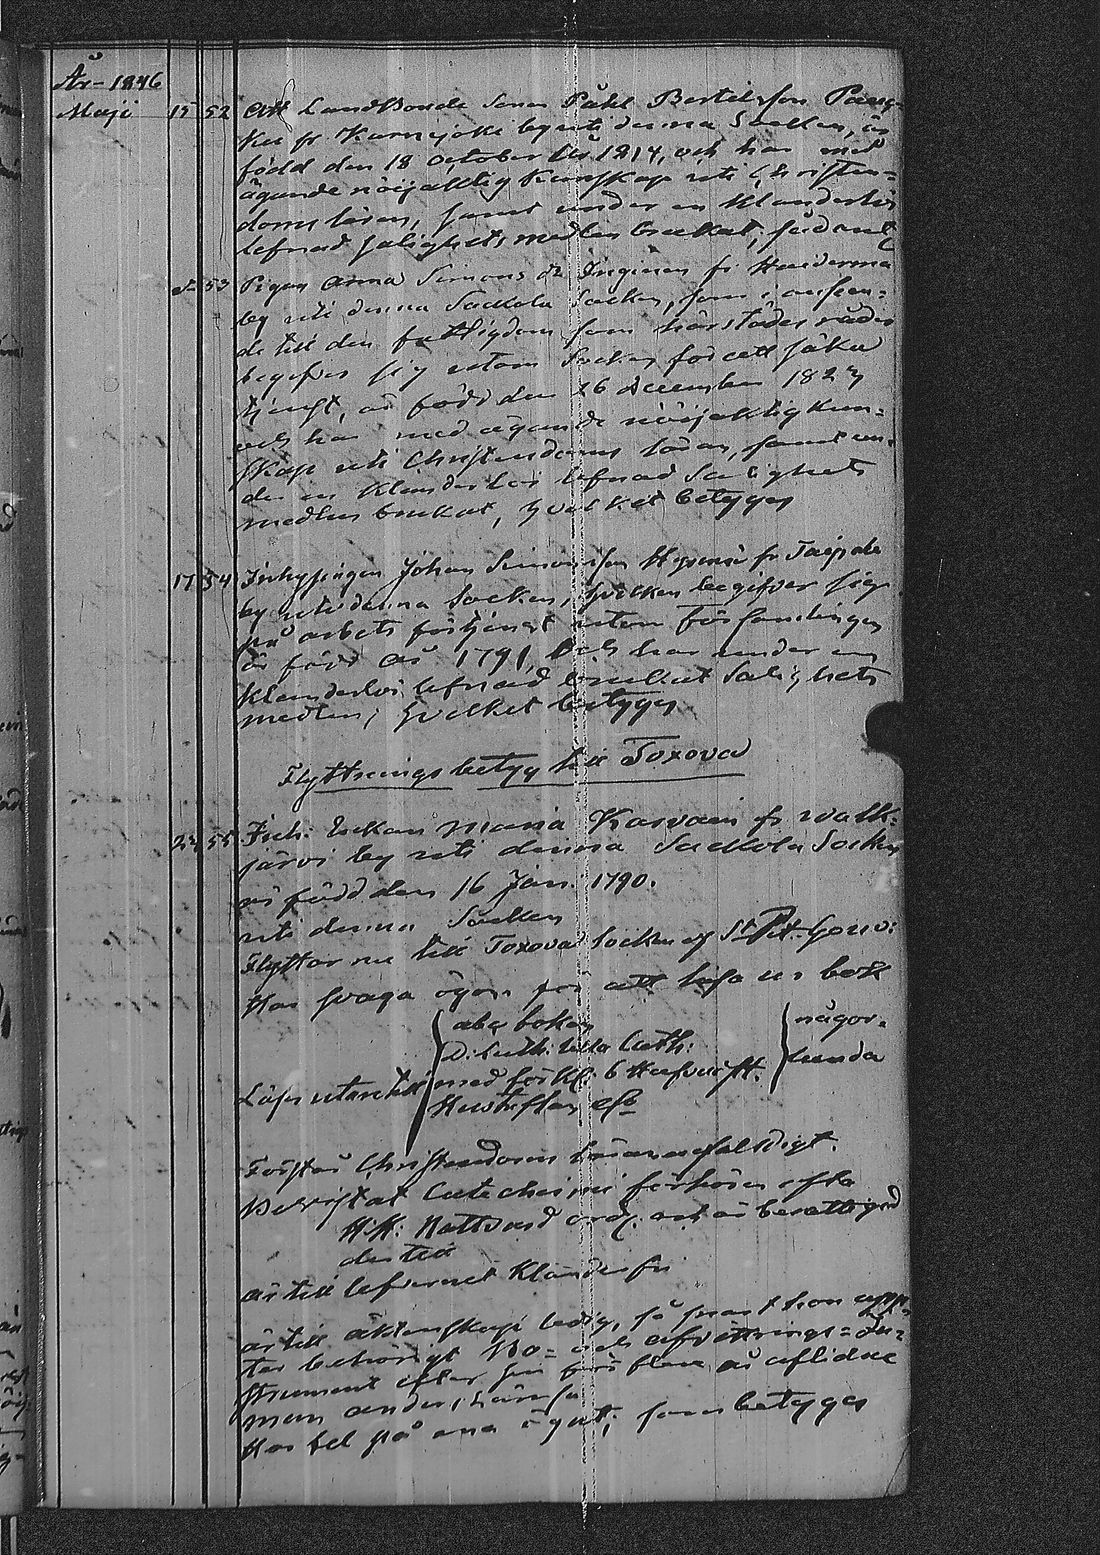 År 1846
Maji 15 52 Att Landbonde Sonen Påhl Bertelsson Pauq-
ku fr Kurnajoki by uti denna Socken, är
född den 18 October år 1814, och har med
ägande nöijaktig Kunskap uti Christen-
doms läran, samt under en klanderlös
lefnad salighets medlen brukat, sådant
53 Pigan Anna Simons dr Inginen fr Haiderma
by uti denna Sackola Socken, som i ansen-
de till den fattigdom som härstädes råder
begifver sig utom Socken för att söka
tjenst, är född den 26 December 1823
och har med ägande nöijaktig kun-
skap uti Christendoms läran, samt un-
der en klanderlös lefnad Salighets
medlen brukat, hvilket betygas
17 54 Inhysingen Johan Simonsson Hyvenä fr Taipale
by uti denna Socken, hvilken begifver sig
på arbets förtjenst utom Församlingen
är född år 1791, och har under en
klanderlös lefnad brukat Salighets
medlen, hvilket betygas
Flyttnings betyg till Toxova
23 55 Inh: Enkan Maria Karvain fr Walk-
järvi by uti denna Sackola Socken
är född den 16 Jan. 1790.
uti denna Socken
Flyttar nu till Toxova Socken af St Pet. Gouv:
Har svaga ögon för att läsa ur bok
abc boken
D: Luth: lilla Cath:
någor-
lunda
Läser utantill med förkl: 6 Hufvudst.
Hustaflan
Förstår Christendoms läran enfaldigt.
Bevistat Catechismi förhören ofta
H: H: Nattvard och är berättigad
dertill
är till lefvernet klanderfri
är till äktenskap ledig, så snart hon upp-
ter behörigt Bo- och afvittrings-In-
strument efter sin för flera år aflidne
man
Har fel på ena ögat; som betygas